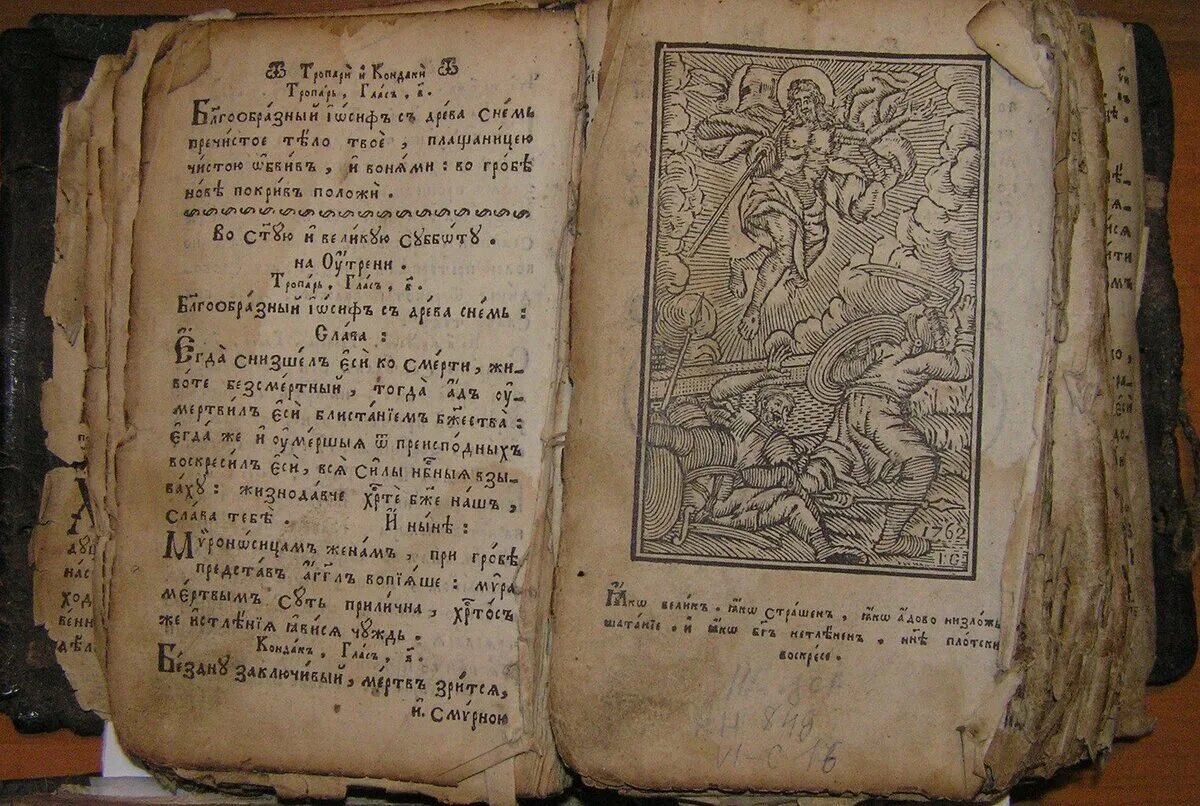 Тропари́ и҆ Кондаки̑
Тропа́рь, Гла́съ, в҃.
Бл҃гообра́зный і҆ѡ́сифъ съ дре́ва сне́мь
пречи́стое тѣ́ло твоѐ, плащани́цею
чи́стою ѡ҆бви́въ, и҆ воня́ми: во гро́бѣ
но́вѣ покри́въ положѝ.
Во ст҃ую и҆ вели́кую Сꙋббѡ́тꙋ.
на Оу҆́трени.
Тропа́рь, Гла́съ, в҃.
Бл҃гообра́зный і҆ѡ́сифъ съ дре́ва сне́мь:
Сла́ва:
Е҆гда̀ снизше́лъ є҆сѝ ко сме́рти, жи-
во́те безсме́ртный, тогда̀ а҆́дъ оу҆-
мертви́лъ є҆сѝ блиста́нїемъ бж҃ества̀:
є҆гда́ же и҆ оу҆ме́ршыѧ ѿ преиспо́дныхъ
воскреси́лъ є҆сѝ, всѧ̑ си́лы нбⷭ҇ныѧ взы-
ва́хꙋ: жизнода́вче хрⷭ҇тѐ бж҃е на́шъ,
сла́ва тебѣ̀. И҆ ны́нѣ:
Мѵронѡ́сицамъ жена́мъ, при гро́бѣ
предста́въ а҆́гг҃лъ вопїѧ́ше: мѵ́ра
ме́ртвымъ сꙋ́ть прили́чна, хрⷭ҇то́съ
же и҆стлѣ́нїѧ ꙗ҆ви́сѧ чꙋ́ждь.
Конда́къ, Гла́съ, в҃.
Бе́зднꙋ заключи́вый, ме́ртвъ зри́тсѧ,
и҆ Смѵ́рною
1762
І G
Ꙗ҆́кѡ вели́къ. ꙗ҆́кѡ стра́шенъ, ꙗ҆́кѡ а҆́дово низло́жь
шата́нїе. и҆ ꙗ҆́кѡ бг҃ъ нетлѣ́ненъ, нн҃ѣ пло́тски
воскре́се.
КН 849
VI-С 16